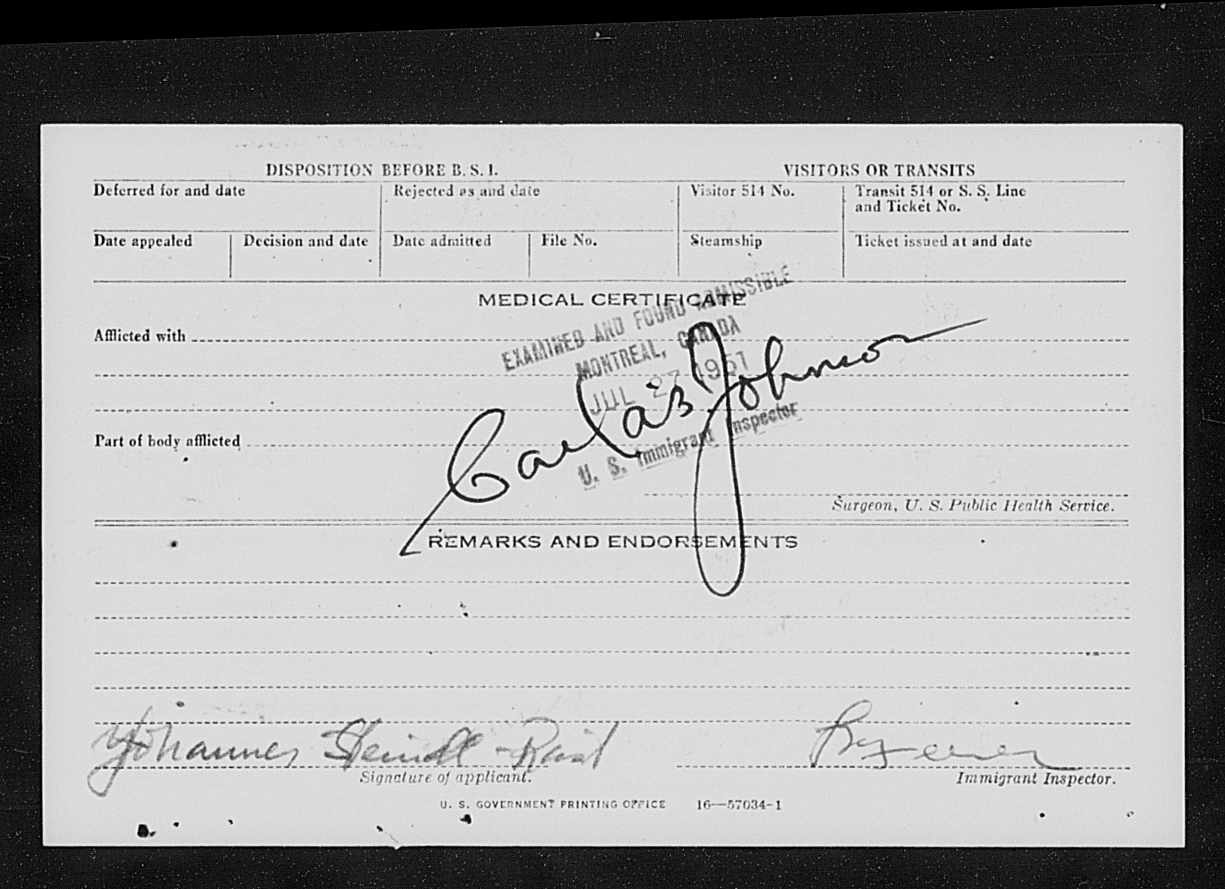 DISPOSITION BEFORE B. S. I. VISITORS OR TRANSITS
Deferred for and date Rejected as and date Visitor 514 No. Transit 514 or S. S. Line
and Ticket No.
Date appealed Decision and date Date admitted File No. Steamship Ticket issued at and date
MEDICAL CERTIFICATE
EXAMINED AND FOUND ADMISSIBLE
Afflicted with
MONTREAL, CANADA
JUL 27 1951
Johnson
U. S. Immigrant Inspector
Part of body afflicted
Surgeon, U. S. Public Health Service.
REMARKS AND ENDORSEMENTS
Johannes Steindl-Rast
Signature of applicant. Immigrant Inspector.
U. S. GOVERNMENT PRINTING OFFICE 16—57034-1